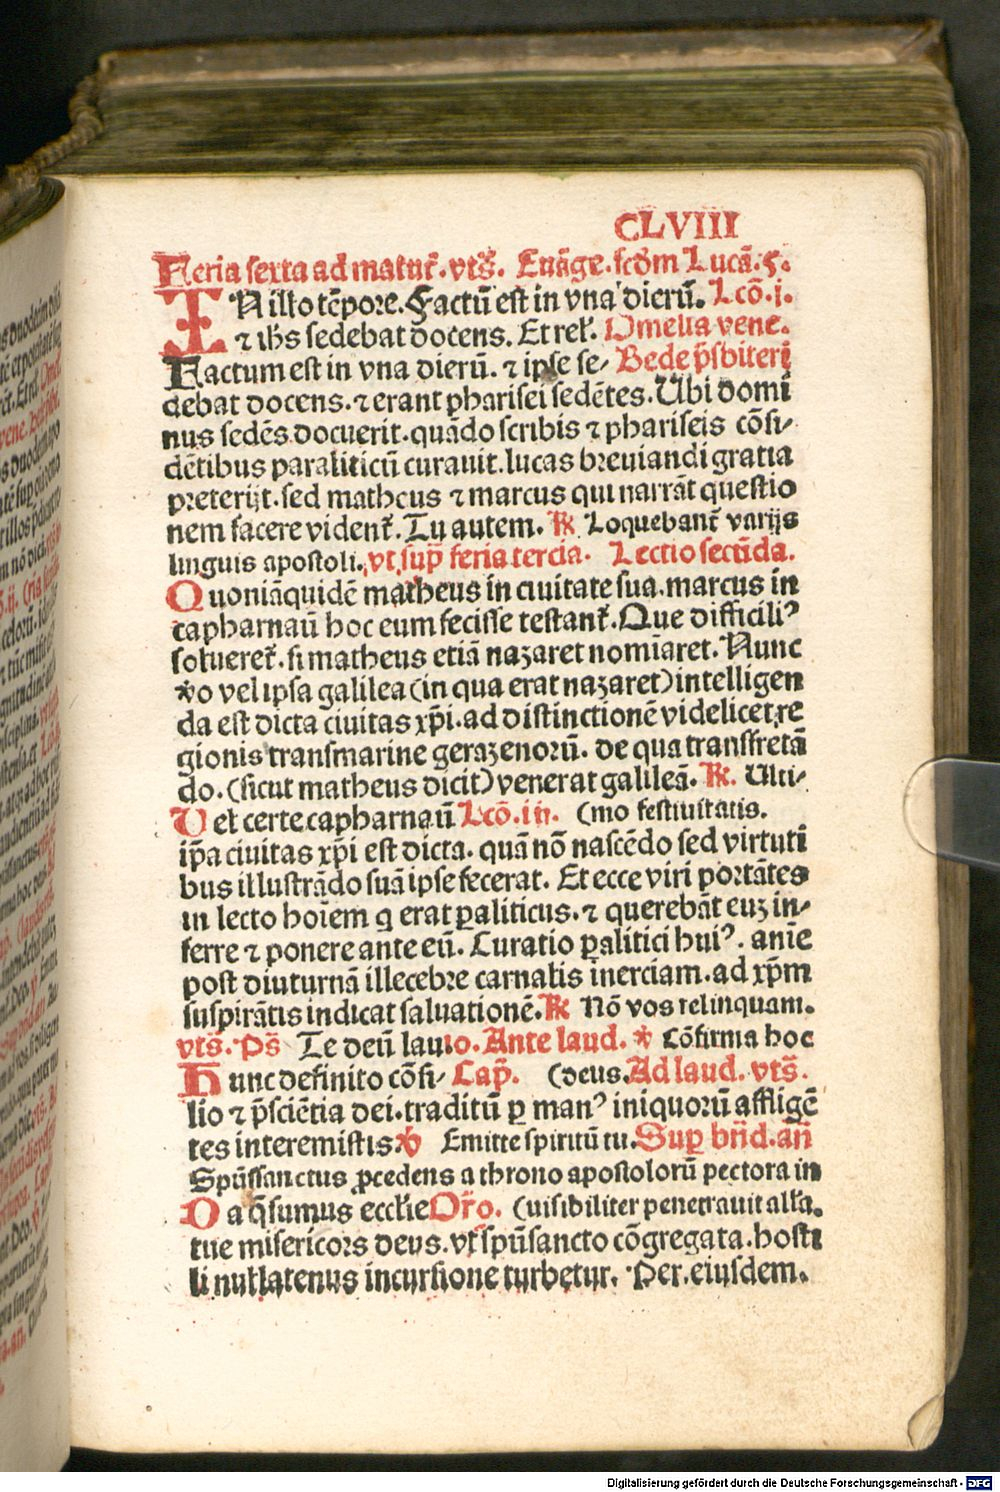 CLVIII
Feria sexta ad matut̄. vts̄. Euāge. scd̄m Lucā. 5.
IN illo tēpore. Factū est in vna dierū. Lcō. i.
⁊ ih̄s sedebat docens. Et rel̄. Omelia vene.
Factum est in vna dierū. ⁊ ipse se- Bede p̄sbiteri
debat docens. ⁊ erant pharisei sedētes. Ubi domi
nus sedēs docuerit. quādo scribis ⁊ phariseis cōsi-
dētibus paraliticū curauit. lucas breuiandi gratia
preterijt. sed matheus ⁊ marcus qui narrāt questio
nem facere vident̄. Tu autem. ℟ Loquebant̄ varijs
linguis apostoli. vt sup̄ feria tercia. Lectio secūda.
Quoniāquidē matheus in ciuitate sua. marcus in
capharnaū hoc eum fecisse testant̄. Que difficiliꝰ
soluereť. si matheus etiā nazaret nomīaret. Nunc
v̄o vel ipsa galilea (in qua erat nazaret) intelligen
da est dicta ciuitas xp̄i. ad distinctionē videlicet re
gionis transmarine gerazenorū. de qua transfretā
do. (sicut matheus dicit) venerat galileā. ℟. Ulti-
Uel certe capharnaū Lcō. iij. (mo festiuitatis.
ip̄a ciuitas xp̄i est dicta. quā nō nascēdo sed virtuti
bus illustrādo suā ipse fecerat. Et ecce viri portātes
in lecto hoīem q erat ꝑaliticus. ⁊ querebāt euꝫ in-
ferre ⁊ ponere ante eū. Curatio ꝑalitici huiꝰ. anīe
post diuturnā illecebre carnalis inerciam. ad xp̄m
suspirātis indicat saluationē. ℟ Nō vos relinquam.
vts̄. Ps̄ Te deū laudo. Ante laud. ℣ Cōfirma hoc
Hunc definito cōsi- Cap̄. (deus. Ad laud. vts̄.
lio ⁊ p̄sciētia dei. traditū ꝑ manꝰ iniquorū affligē
tes interemistis. ℣ Emitte spiritū tu. Suꝑ bn̄d. an̄
Spūssanctus ꝓcedens a throno apostolorū pectora in
Da q̄sumus eccl̄ie Or̄o. (uisibiliter penetrauit all̄a.
tue misericors deus. vt spūsancto cōgregata. hosti
li nullatenus incursione turbetur. Per. eiusdem.
Digitalisierung gefördert durch die Deutsche Forschungsgemeinschaft - DFG